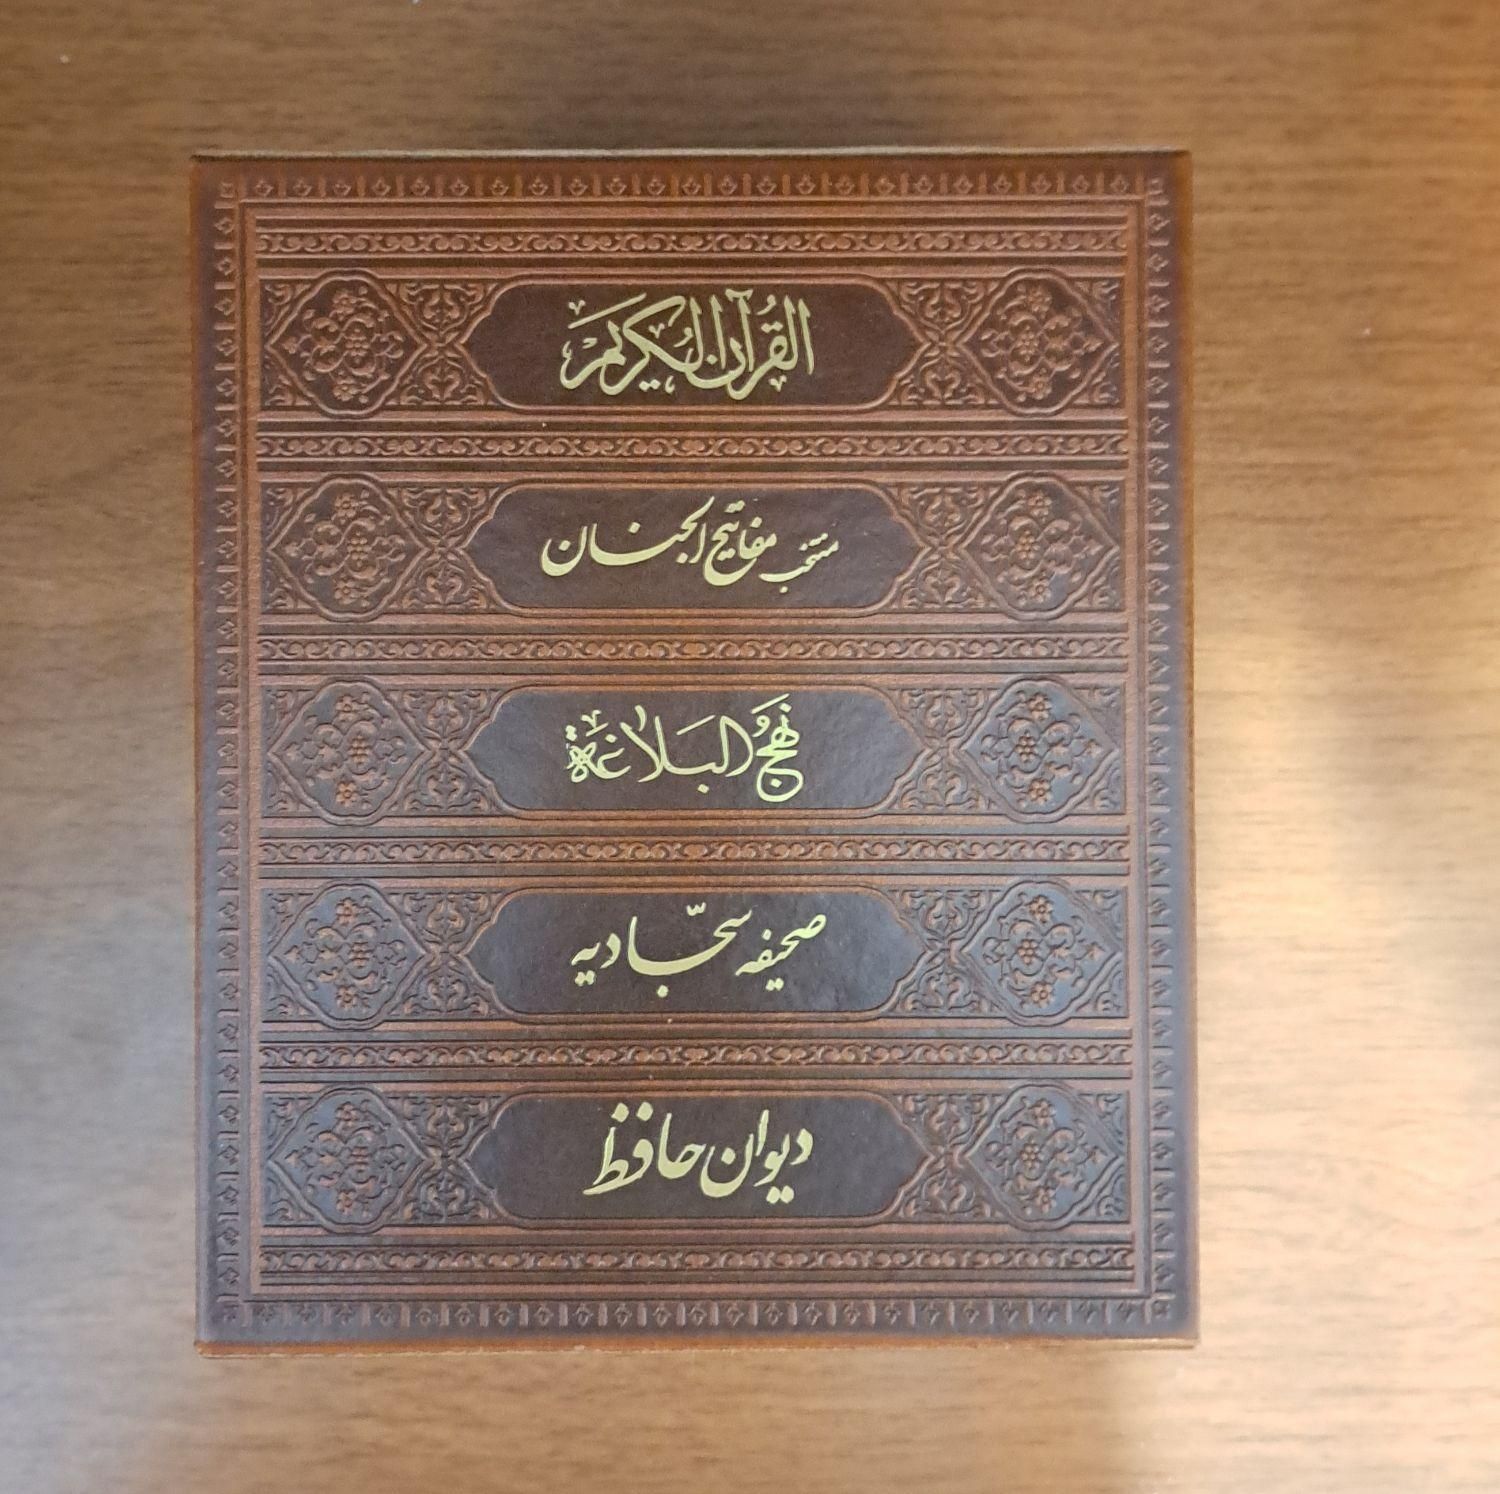 القُرآن الكَريم
منتخب مفاتیح الجنان
نَهجُ البَلاغَة
صحیفه سجّادیه
دیوان حافظ